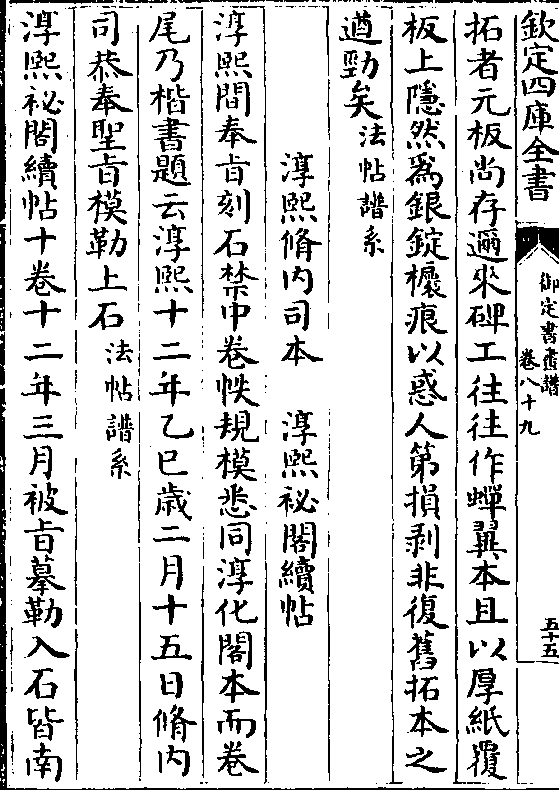 欽定四庫全書
御定書畫譜
卷八十九
五十五
拓者元板尚存邇來碑工往往作蟬翼本且以厚紙覆
板上隱然為銀錠櫰痕以惑人第損剥非復舊拓本之
遒勁矣法帖譜系
淳熙脩内司本 淳熙祕閣續帖
淳熙間奉㫖刻石禁中卷帙規模悉同淳化閣本而卷
尾乃楷書題云淳熙十二年乙巳歳二月十五日脩内
司恭奉聖㫖模勒上石法帖譜系
淳熙祕閣續帖十卷十二年三月被㫖摹勒入石皆南